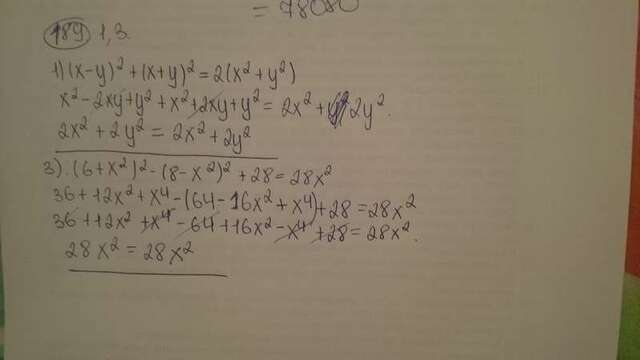 = 98000
189 1,3
1) (x-y)² + (x+y)² = 2(x²+y²)
x² - 2xy + y² + x² + 2xy + y² = 2x² + 2y².
2x² + 2y² = 2x² + 2y²
3) (6+x²)² - (8-x²)² + 28 = 28x²
36 + 12x² + x⁴ - (64 - 16x² + x⁴) + 28 = 28x²
36 + 12x² + x⁴ - 64 + 16x² - x⁴ + 28 = 28x².
28x² = 28x²